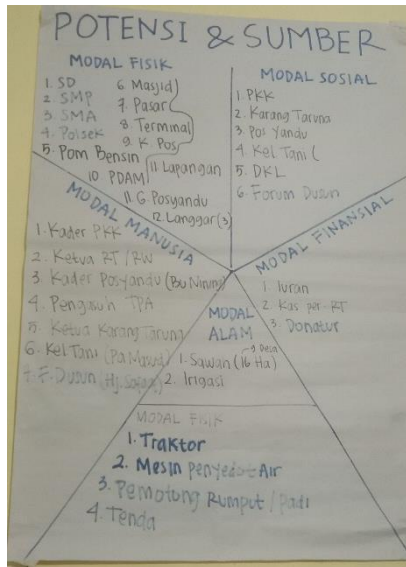 POTENSI & SUMBER
MODAL FISIK
1. SD
2. SMP
3. SMA
4. Polsek
5. Pom Bensin
6. Masjid
7. Pasar
8. Terminal
9. K Pos
10. PDAM
11. Lapangan
11. G. Posyandu
12. Langgar (3)
MODAL SOSIAL
1. PKK
2. Karang Taruna
3. Pos Yandu
4. Kel Tani (
5. DKL
6. Forum Dusun
MODAL MANUSIA
1. Kader PKK
2. Ketua RT / RW
3. Kader Posyandu (Bu Nining)
4. Pengasuh TPA
5. Ketua Karang Taruna
6. Kel Tani
7. F. Dusun
MODAL FINANSIAL
1. Iuran
2. Kas per-RT
3. Donatur
MODAL ALAM
1. Sawah (16 Ha)
2. Irigasi
MODAL FISIK
1. Traktor
2. Mesin Penyedot Air
3. Pemotong Rumput / padi
4. Tenda